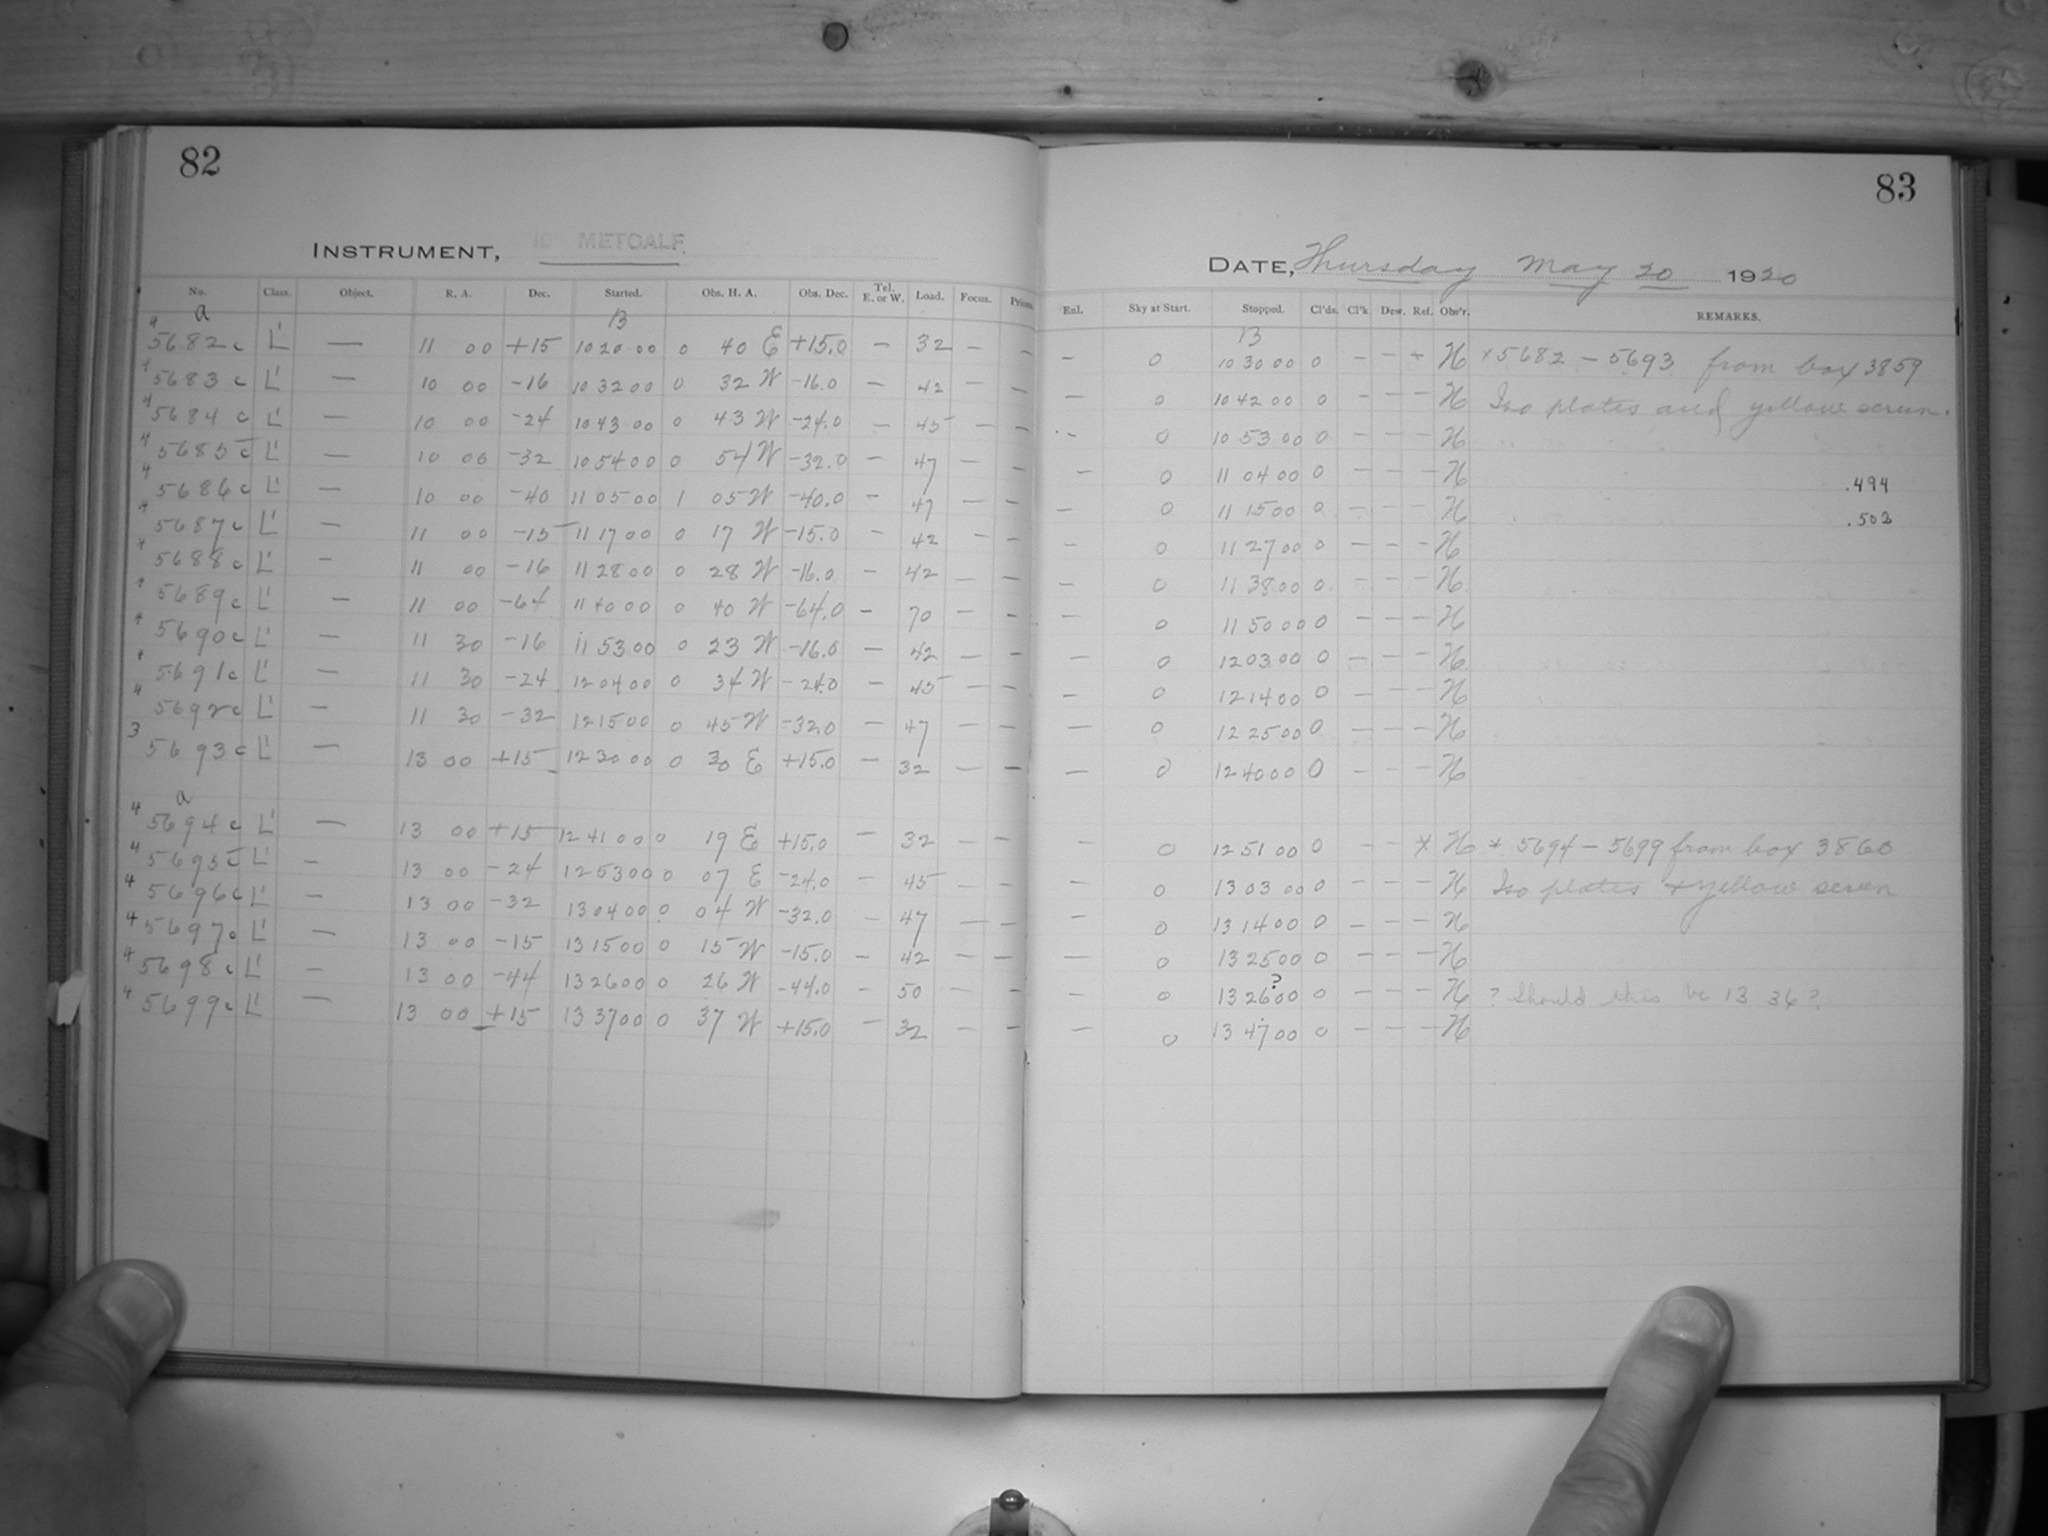 82
INSTRUMENT, 10" METCALF
No. Class. Object. R. A. Dec. Started. Obs. H. A. Obs. Dec. Tel. E. or W. Load. Focus. Prism
a B
4 5682 c L' — 11 00 +15 10 20 00 0 40 E +15.0 — 32 — —
4 5683 c L' — 10 00 -16 10 32 00 0 32 W -16.0 — 42 — —
4 5684 c L' — 10 00 -24 10 43 00 0 43 W -24.0 — 45 — —
4 5685 c L' — 10 00 -32 10 54 00 0 54 W -32.0 — 47 — —
4 5686 c L' — 10 00 -40 11 05 00 1 05 W -40.0 — 47 — —
4 5687 c L' — 11 00 -15 11 17 00 0 17 W -15.0 — 42 — —
4 5688 c L' — 11 00 -16 11 28 00 0 28 W -16.0 — 42 — —
4 5689 c L' — 11 00 -64 11 40 00 0 40 W -64.0 — 70 — —
4 5690 c L' — 11 30 -16 11 53 00 0 23 W -16.0 — 42 — —
4 5691 c L' — 11 30 -24 12 04 00 0 34 W -24.0 — 45 — —
4 5692 c L' — 11 30 -32 12 15 00 0 45 W -32.0 — 47 — —
3 5693 c L' — 13 00 +15 12 30 00 0 30 E +15.0 — 32 — —
a
4 5694 c L' — 13 00 +15 12 41 00 0 19 E +15.0 — 32 — —
4 5695 c L' — 13 00 -24 12 53 00 0 07 E -24.0 — 45 — —
4 5696 c L' — 13 00 -32 13 04 00 0 04 W -32.0 — 47 — —
4 5697 c L' — 13 00 -15 13 15 00 0 15 W -15.0 — 42 — —
4 5698 c L' — 13 00 -44 13 26 00 0 26 W -44.0 — 50 — —
4 5699 c L' — 13 00 +15 13 37 00 0 37 W +15.0 — 32 — —
83
DATE, Thursday May 20 1920
Enl. Sky at Start. Stopped. Cl'ds. Cl'k. Dew. Ref. Obs'r. REMARKS.
B
— 0 10 30 00 0 — — * H * 5682 — 5693 from box 3859
— 0 10 42 00 0 — — — H Iso plates and yellow screen.
— 0 10 53 00 0 — — — H
— 0 11 04 00 0 — — — H .494
— 0 11 15 00 0 — — — H .503
— 0 11 27 00 0 — — — H
— 0 11 38 00 0 — — — H
— 0 11 50 00 0 — — — H
— 0 12 03 00 0 — — — H
— 0 12 14 00 0 — — — H
— 0 12 25 00 0 — — — H
— 0 12 40 00 0 — — — H
— 0 12 51 00 0 — — * H * 5694 — 5699 from box 3860
— 0 13 03 00 0 — — — H Iso plates + yellow screen
— 0 13 14 00 0 — — — H
— 0 13 25 00 0 — — — H
— 0 13 26 ? 00 0 — — — H ? Should this be 13 36 ?
— 0 13 47 00 0 — — — H